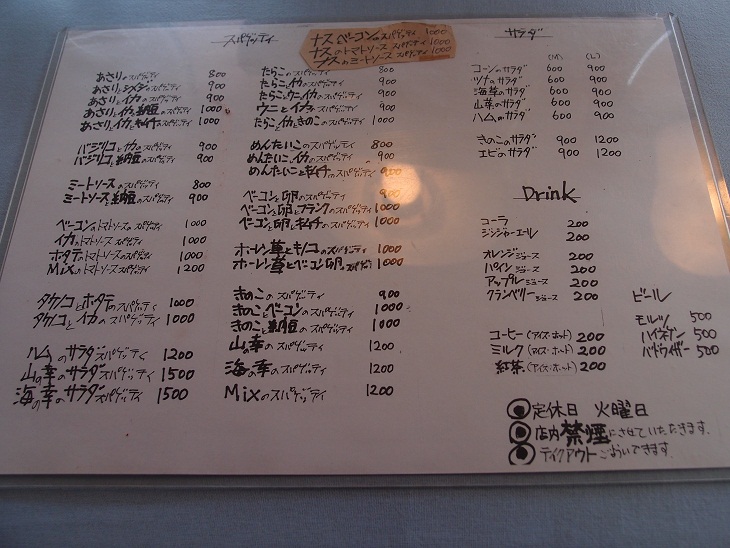 スパゲッティ
ナスベーコンのスパゲティ 1000
ナスのトマトソース スパゲティ 1000
ナスのミートソース スパゲティ 1000
あさりのスパゲティ 800
あさりとシメジのスパゲティ 900
あさりとイカのスパゲティ 900
あさりとイカと納豆のスパゲティ 1000
あさりとイカとキムチのスパゲティ 1000
バジリコとイカのスパゲティ 900
バジリコと納豆のスパゲティ 900
ミートソースのスパゲティ 800
ミートソースと納豆のスパゲティ 900
ベーコンのトマトソースのスパゲティ 1000
イカのトマトソース スパゲティ 1000
ホタテのトマトソースのスパゲティ 1000
Mixのトマトソース スパゲティ 1200
タケノコとホタテのスパゲティ 1000
タケノコとイカのスパゲティ 1000
ハムのサラダスパゲティ 1200
山の幸のサラダスパゲティ 1500
海の幸のサラダスパゲティ 1500
たらこのスパゲティ 800
たらことイカのスパゲティ 900
たらことウニとイカのスパゲティ 1000
ウニとイカのスパゲティ 1000
たらことイカときのこのスパゲティ 1000
めんたいこのスパゲティ 800
めんたいことイカのスパゲティ 900
めんたいことキムチのスパゲティ 900
ベーコンと卵のスパゲティ 900
ベーコンと卵とフランクのスパゲティ 1000
ベーコンと卵とキムチのスパゲティ 1000
ホーレン草とキノコのスパゲティ 1000
ホーレン草とベーコンと卵のスパゲティ 1000
きのこのスパゲティ 900
きのことベーコンのスパゲティ 1000
きのこと納豆のスパゲティ 1000
山の幸のスパゲティ 1200
海の幸のスパゲティ 1200
Mixのスパゲティ 1200
サラダ
(M) (L)
コーンのサラダ 600 900
ツナのサラダ 600 900
海草のサラダ 600 900
山菜のサラダ 600 900
ハムのサラダ 600 900
きのこのサラダ 900 1200
エビのサラダ 900 1200
Drink
コーラ 200
ジンジャーエール 200
オレンジジュース 200
パインジュース 200
アップルジュース 200
クランベリージュース 200
コーヒー(アイス・ホット) 200
ミルク(アイス・ホット) 200
紅茶(アイス・ホット) 200
ビール
モルツ 500
ハイネケン 500
バドワイザー 500
◉定休日 火曜日
◉店内禁煙にさせていただきます.
◉テイクアウトごよういできます.